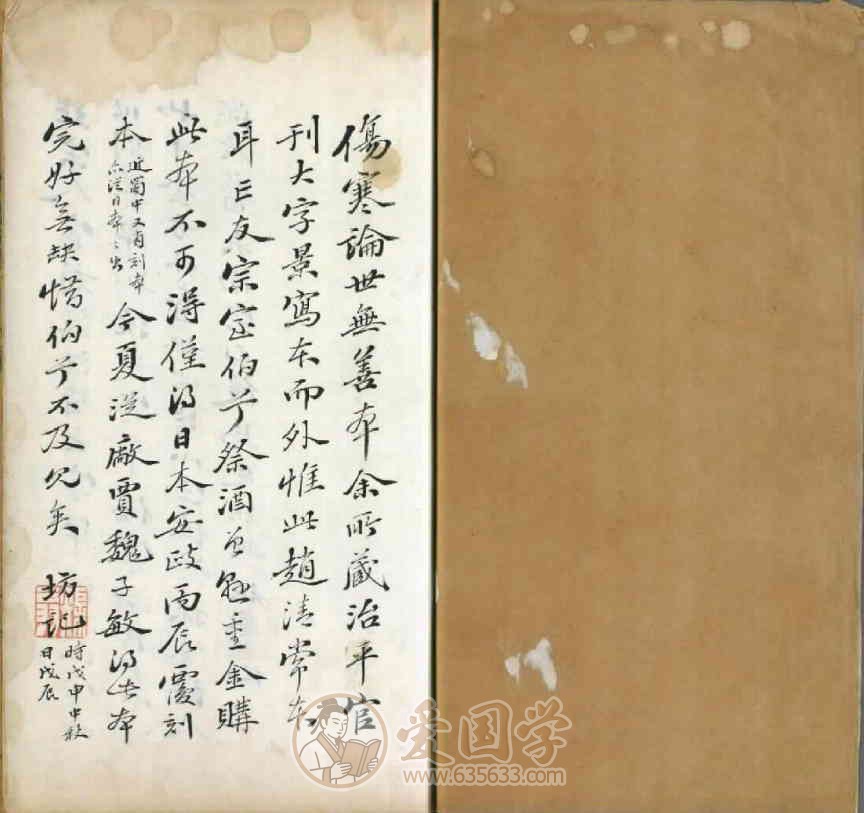 傷寒論世無善本余所藏治平官
刊大字景寫本而外惟此趙清常本
耳亡友宗室伯兮祭酒曾懸重金購
此本不可得僅得日本安政丙辰覆刻
本近蜀中又有刻本亦從日本之出今夏從廠賈魏子敏得此本
完好無缺惜伯兮不及見矣 坊記時戊申中秋日戊辰
爱国学
www.635633.com